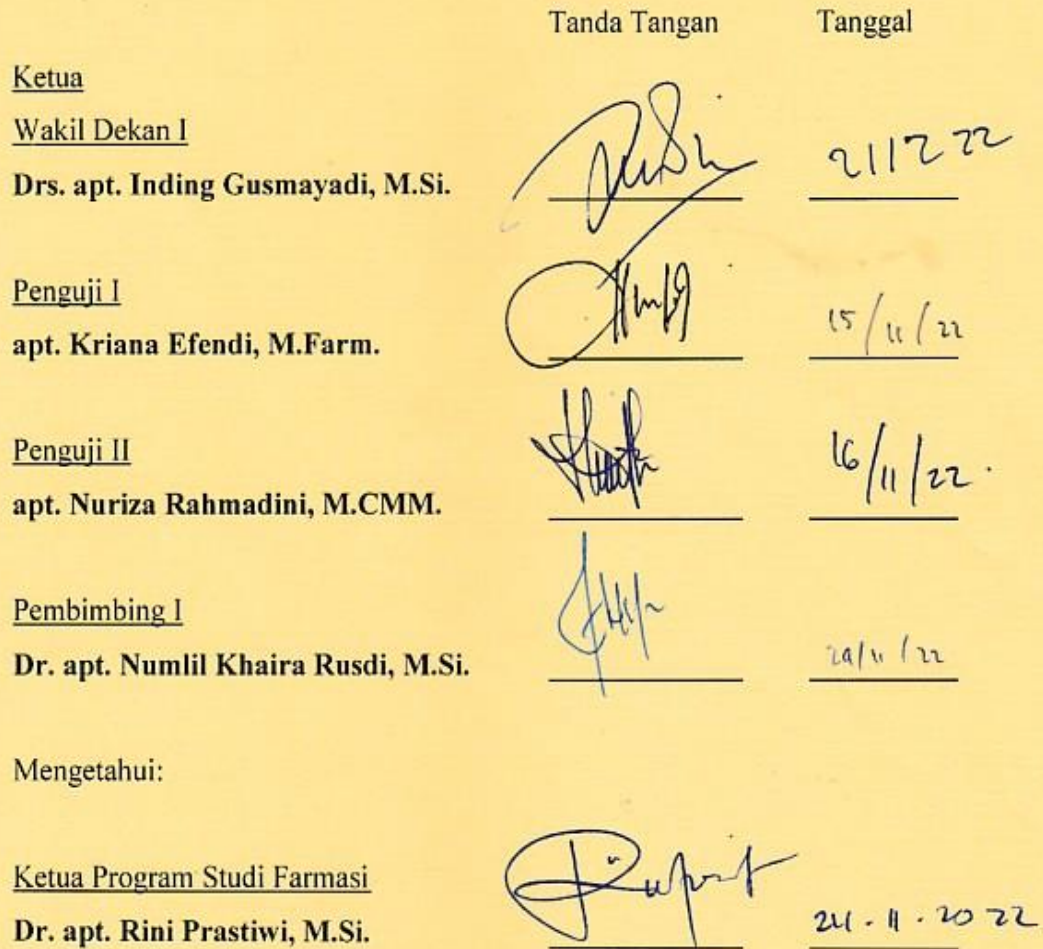 Tanda Tangan Tanggal
Ketua
Wakil Dekan I
Drs. apt. Inding Gusmayadi, M.Si. 2112 22
Penguji I
apt. Kriana Efendi, M.Farm. 15/11/22
Penguji II
apt. Nuriza Rahmadini, M.CMM. 16/11/22.
Pembimbing I
Dr. apt. Numlil Khaira Rusdi, M.Si. 29/11/22
Mengetahui:
Ketua Program Studi Farmasi
Dr. apt. Rini Prastiwi, M.Si. 24.11.2022